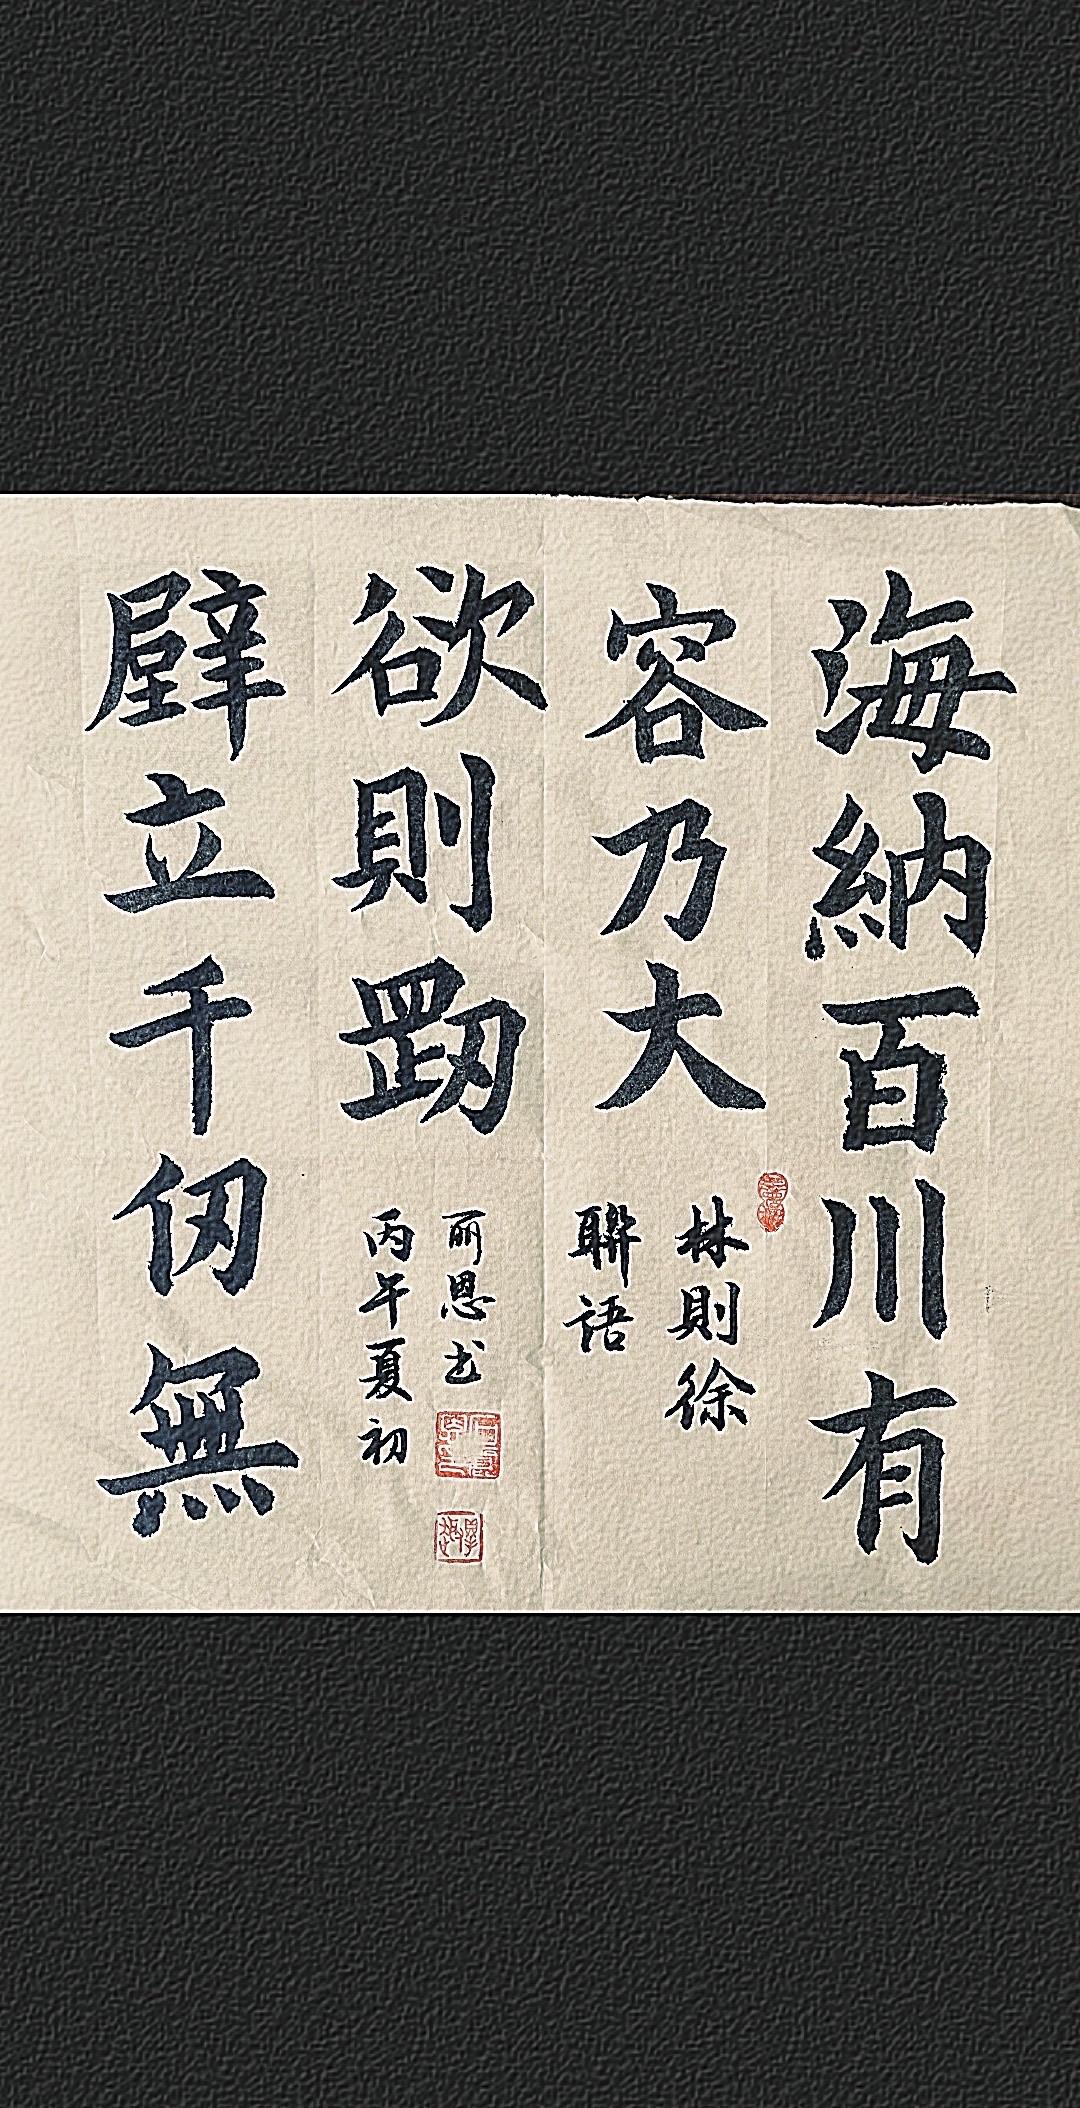 海納百川有
容乃大
林則徐
聯語
壁立千仞無
欲則剛
丙午夏初
丽恩书